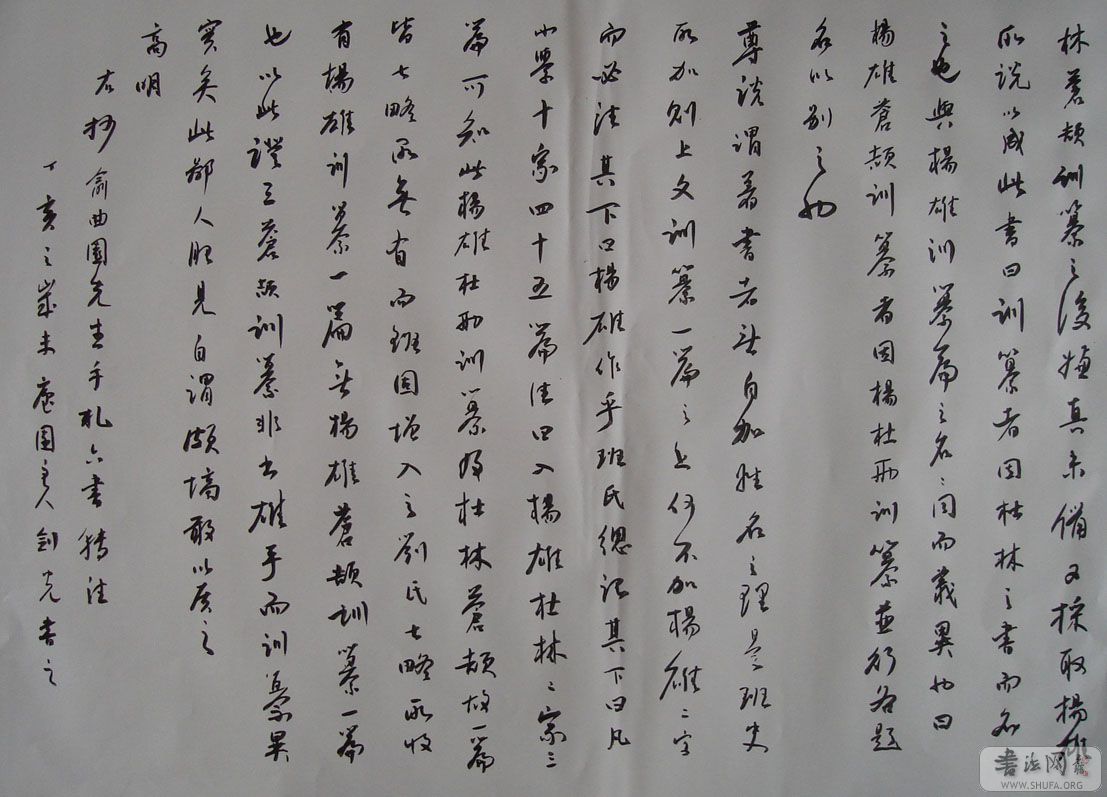 林蒼頡訓纂之後嫌其未備又採取楊雄
所說以成此書曰訓纂者因杜林之書而名
之也與楊雄訓纂篇之名〻同而義異也曰
楊雄蒼頡訓纂者因楊杜兩訓纂並行各題
名以别之也
尊說謂著書者無自加姓名之理是班史
所加則上文訓纂一篇之上何不加楊雄二字
而必注其下曰楊雄作乎班氏總記其下曰凡
小學十家四十五篇注曰入楊雄杜林二家三
篇可知此楊雄杜兩訓纂及杜林蒼頡故一篇
皆七略所無有而班固增入之劉氏七略所收
有楊雄訓纂一篇無楊雄蒼頡訓纂一篇
也以此證之蒼頡訓纂非出雄手而訓纂異
實矣此鄙人肊見自謂頗塙敢以質之
高明
右抄俞曲園先生手札六書轉注
丁亥之歲末 園主人劍光書之
書法网
WWW.SHUFA.ORG